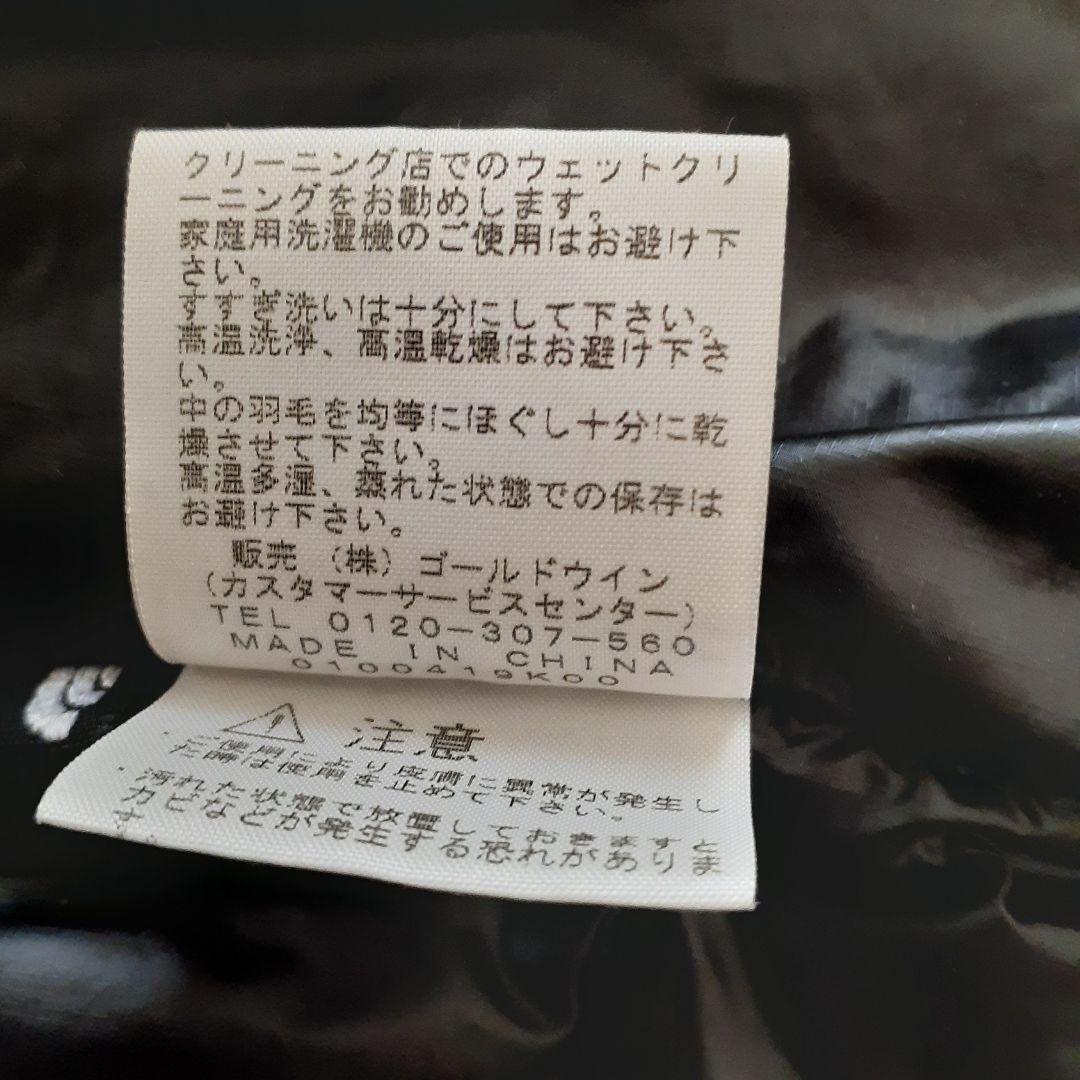 クリーニング店でのウェットクリ
ーニングをお勧めします。
家庭用洗濯機のご使用はお避け下
さい。
すすぎ洗いは十分にして下さい。
高温洗浄、高温乾燥はお避け下さ
い。
中の羽毛を均等にほぐし十分に乾
燥させて下さい。
高温多湿、蒸れた状態での保存は
お避け下さい。
販売 (株) ゴールドウイン
(カスタマーサービスセンター)
TEL 0120-307-560
MADE IN CHINA
0100419K00
⚠ 注意
・ご使用により皮膚に異常が発生し
た時は使用を止めて下さい。
・汚れた状態で放置しておきますと
カビなどが発生する恐れがありま
す。